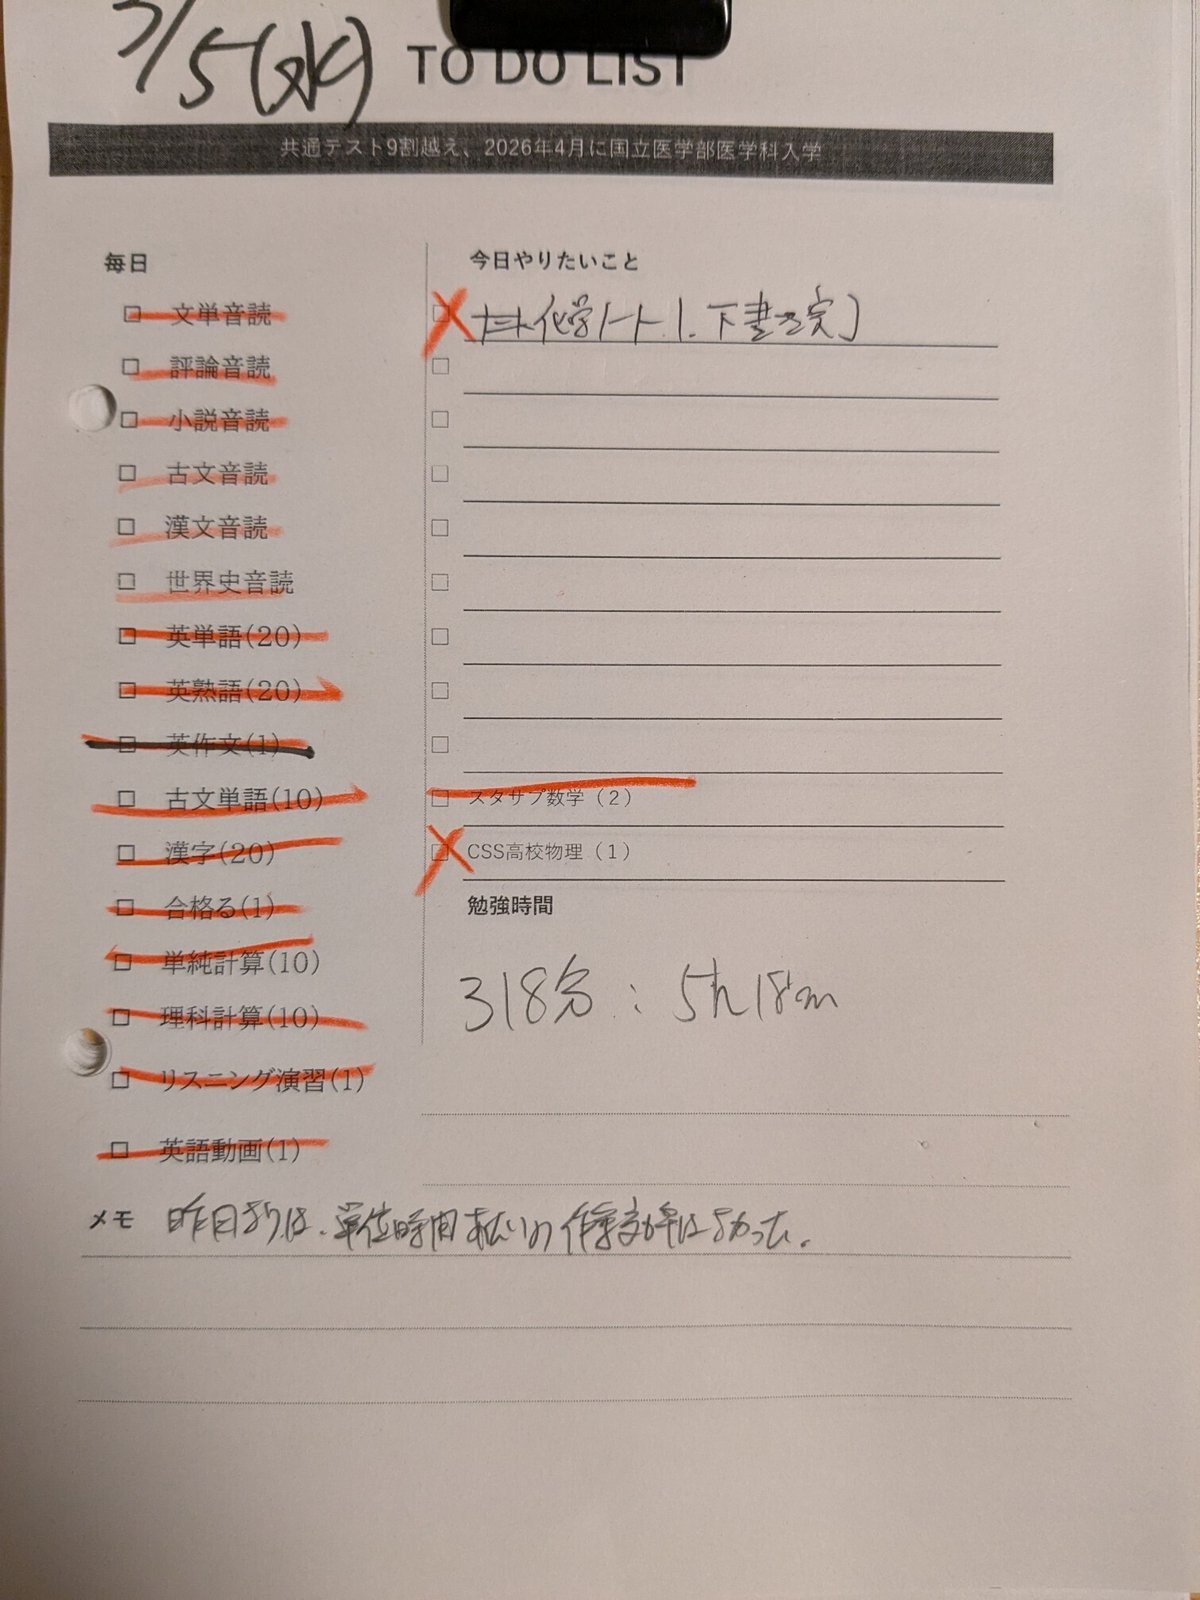 /5(水)
TO DO LIST
共通テスト9割越え、2026年4月に国立医学部医学科入学
毎日
文単音読
評論音読
小説音読
古文音読
漢文音読
世界史音読
英単語(20)
英熟語(20)
英作文(1)
古文単語(10)
漢字(20)
合格る(1)
単純計算(10)
理科計算(10)
リスニング演習(1)
英語動画(1)
今日やりたいこと
化学ノート1.下書き完了
スタサプ数学（2）
CSS高校物理（1）
勉強時間
318分：5h18m
メモ 昨日よりは、単位時間あたりの作業効率はよかった。